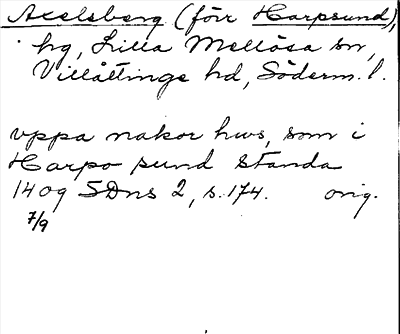 Axelsberg (förr Harpsund),
hg, Lilla Mellösa sn,
Villåttinge hd, Söderm. l.
vppa nakor hws, som i
Harpo sund standa
1409 SDns 2, s. 174. orig.
7/9